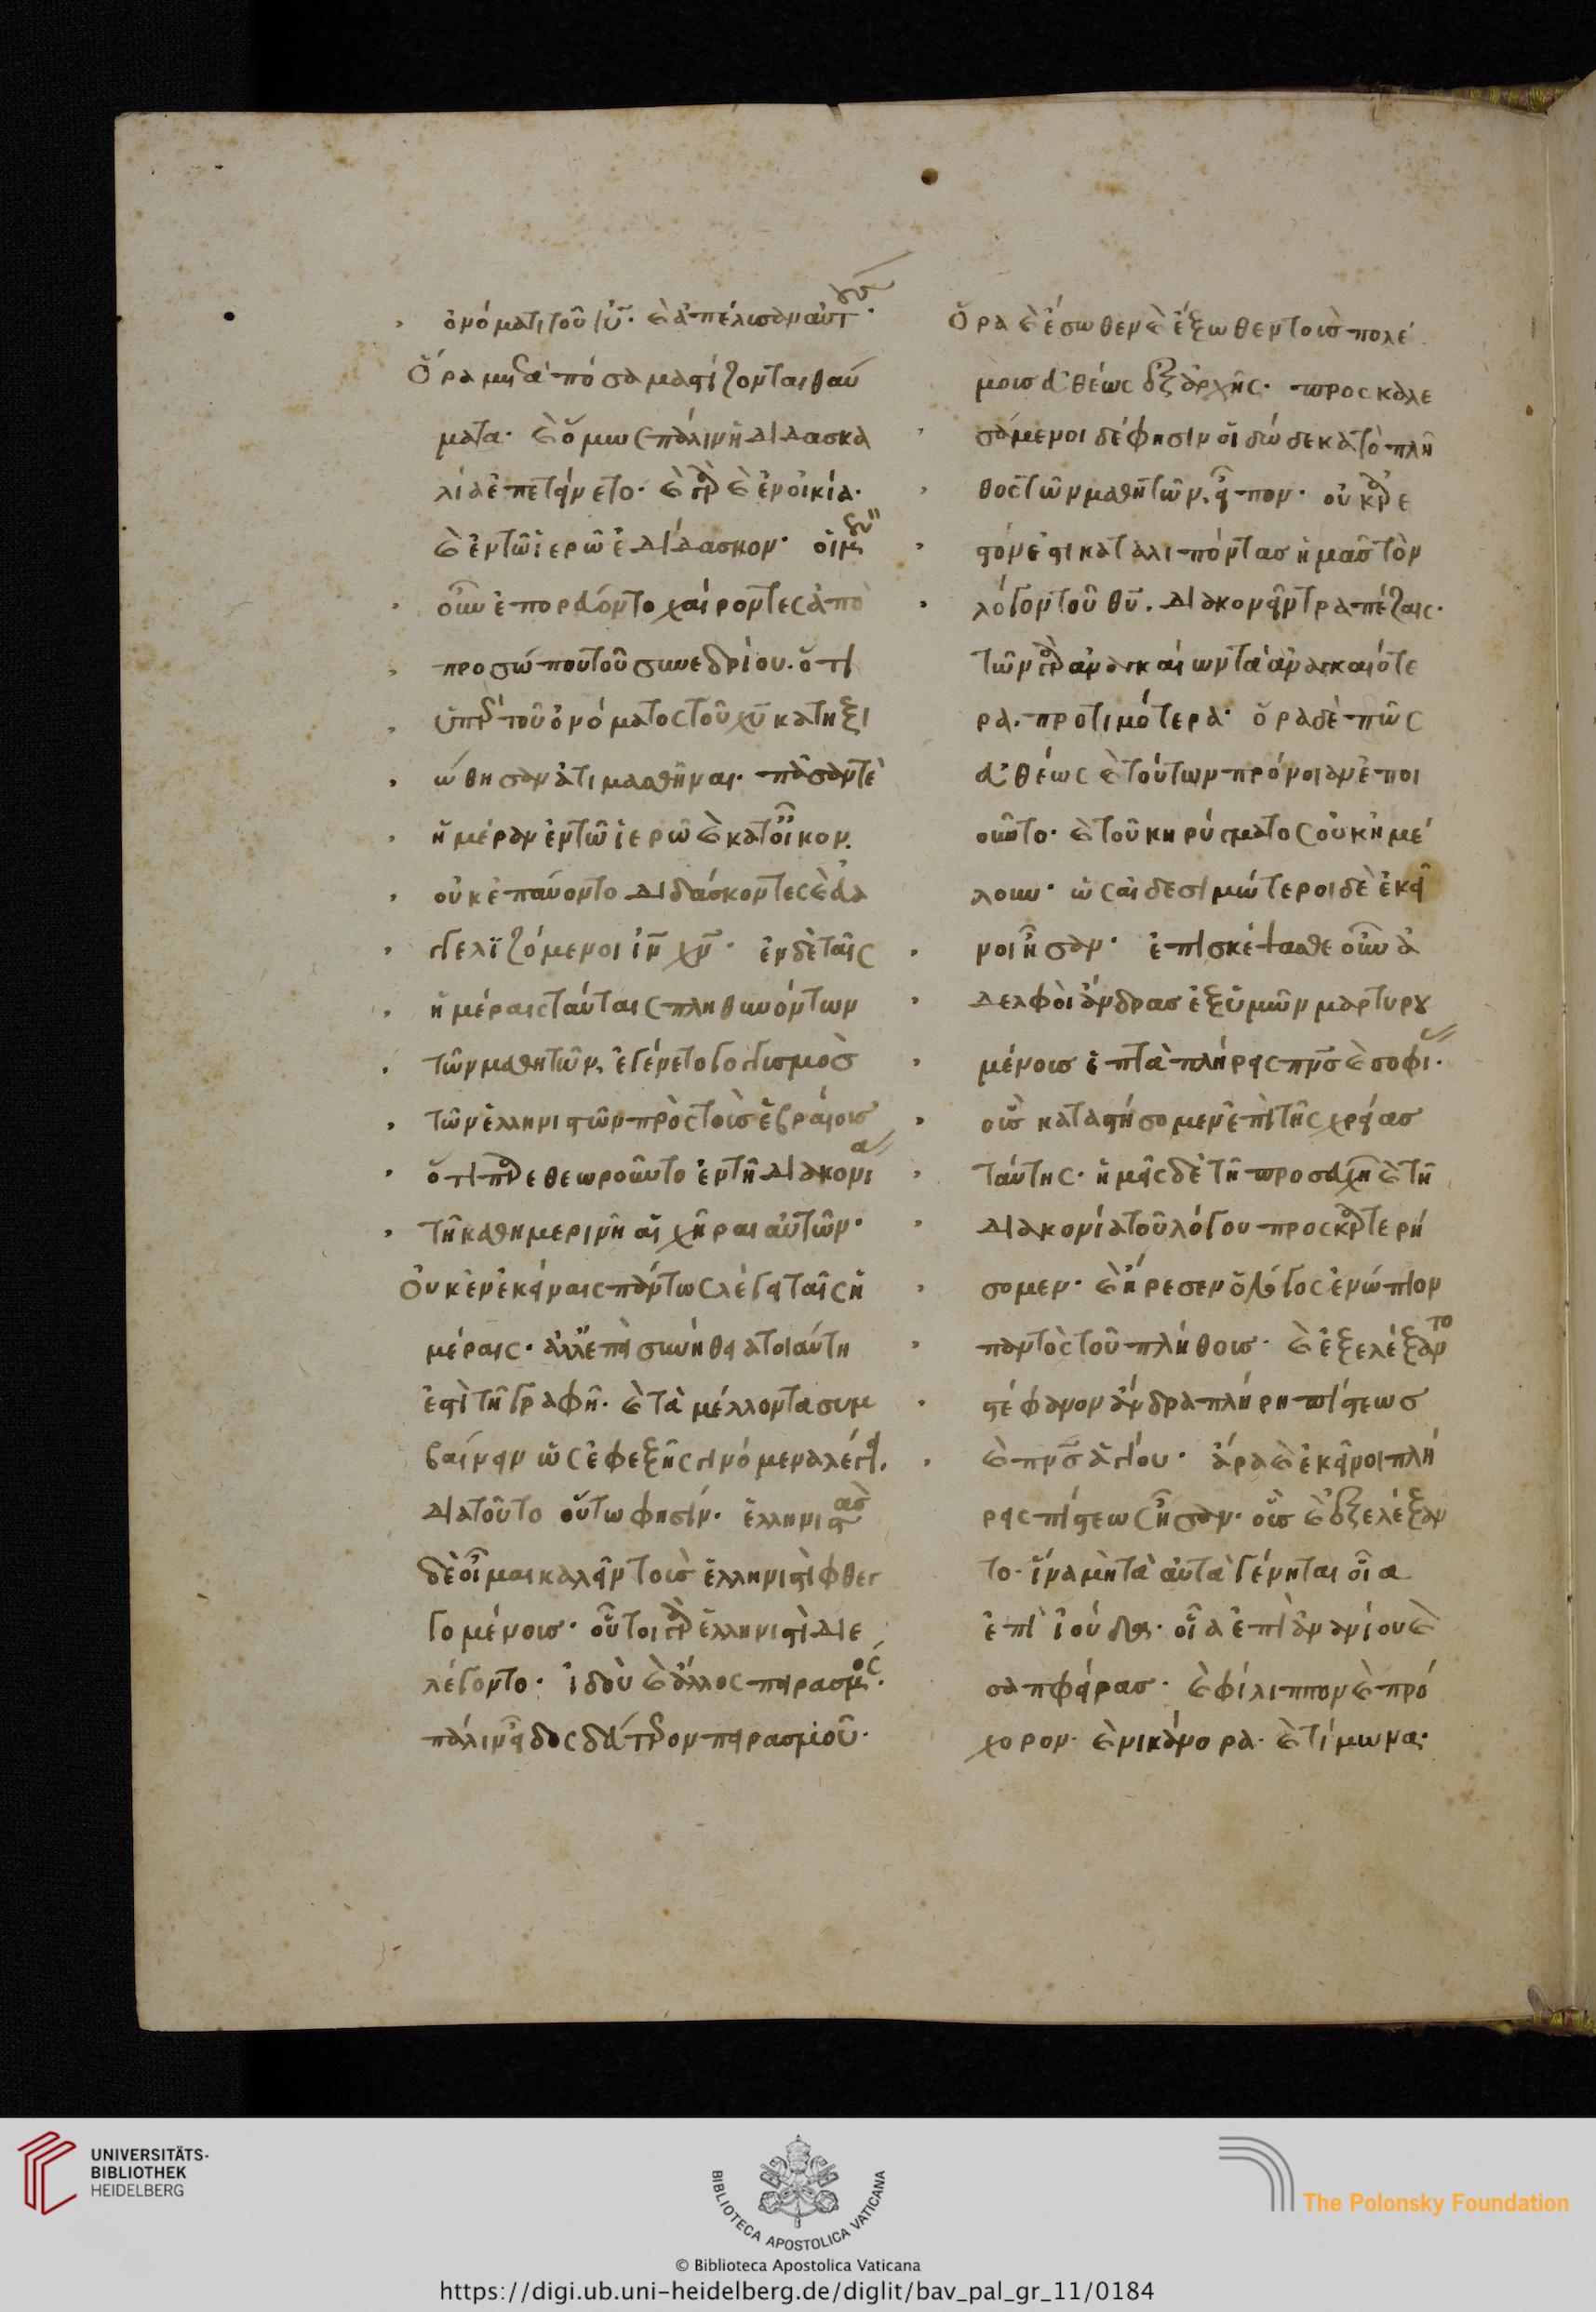 ὀνόματι τοῦ ἰῦ. καὶ ἀπέλυσαν αὐτούς.
Ὅρα μεθ' ἃ πόσα μαστίζονται θαύ
ματα. καὶ ὅμως πάλιν ἡ διδασκα
λία ἐπετείνετο. καὶ γὰρ καὶ ἐν οἰκία.
καὶ ἐν τῶ ἱερῶ ἐδίδασκον. οἱ μὲν
οὖν ἐπορεύοντο χαίροντες ἀπὸ
προσώπου τοῦ συνεδρίου. ὅτι
ὑπὲρ τοῦ ὀνόματος τοῦ χῦ κατηξι
ώθησαν ἀτιμασθῆναι. πᾶσαν τὲ
ἡμέραν ἐν τῶ ἱερῶ καὶ κατοῖκον.
οὐκ ἐπαύοντο διδάσκοντες καὶ εὐα
γγελϊζόμενοι ἰν χν. ἐν δὲ ταῖς
ἡμέραις ταύταις πληθυνόντων
τῶν μαθητῶν, ἐγένετο γογγυσμὸς
τῶν ἑλληνιστῶν πρὸς τοὺς ἑβραίους
ὅτι παρεθεωροῦντο ἐν τῆ διακονία
τῆ καθημερινῆ αἱ χῆραι αὐτῶν.
Οὐκ ἐν ἐκείναις πάντως λέγει ταῖς ἡ
μέραις. ἀλλ' ἐπεὶ συνήθεια τοιαύτη
ἐστὶ τῆ γραφῆ. καὶ τὰ μέλλοντα συμ
βαίνειν ὡς ἐφεξῆς γινόμενα λέγει.
διατοῦτο οὕτω φησίν. ἑλληνιστὰς
δὲ οἶμαι καλεῖν τοὺς ἑλληνιστὶ φθεγ
γομένους. οὗτοι γὰρ ἑλληνιστὶ διε
λέγοντο. ἰδοὺ καὶ ἄλλος πειρασμός.
πάλιν εἶδος δεύτερον πειρασμοῦ.
Ὅρα καὶ ἔσωθεν καὶ ἔξωθεν τοὺς πολέ
μους εὐθέως ἐξ ἀρχῆς. προσκαλε
σάμενοι δέ φησιν οἱ δώδεκα τὸ πλῆ
θος τῶν μαθητῶν, εἶπον. οὐκ ἀρε
στόν ἐστι καταλιπόντας ἡμᾶς τὸν
λόγον τοῦ θῦ. διακονεῖν τραπέζαις.
τῶν γὰρ ἀναγκαίων τὰ ἀναγκαιότε
ρα. προτιμότερα. ὅρα δὲ πῶς
εὐθέως καὶ τούτων πρόνοιαν ἐποι
οῦντο. καὶ τοῦ κηρύγματος οὐκ ἠμέ
λουν. ὡς αἰδεσιμώτεροι δὲ ἐκεῖ
νοι ἦσαν. ἐπισκέψασθε οὖν ἀ
δελφοὶ ἄνδρας ἐξ ὑμῶν μαρτυρου
μένους ἑπτὰ πλήρεις πνς καὶ σοφίας.
οὓς καταστήσομεν ἐπὶ τῆς χρείας
ταύτης. ἡμεῖς δὲ τῆ προσευχῆ καὶ τῆ
διακονία τοῦ λόγου προσκαρτερή
σομεν. καὶ ἤρεσεν ὁ λόγος ἐνώπιον
παντὸς τοῦ πλήθους. καὶ ἐξελέξαντο
στέφανον ἄνδρα πλήρη πίστεως
καὶ πνς ἁγίου. ἄρα καὶ ἐκεῖνοι πλή
ρεις πίστεως ἦσαν. οὓς καὶ ἐξελέξαν
το. ἵνα μὴ τὰ αὐτὰ γένηται οἷα
ἐπὶ ἰούδα. οἷα ἐπὶ ἀνανίου καὶ
σαπφείρας. καὶ φίλιππον καὶ πρό
χορον. καὶ νικάνορα. καὶ τίμωνα.
UNIVERSITÄTS-
BIBLIOTHEK
HEIDELBERG
BIBLIOTECA APOSTOLICA VATICANA
The Polonsky Foundation
© Biblioteca Apostolica Vaticana
https://digi.ub.uni-heidelberg.de/diglit/bav_pal_gr_11/0184